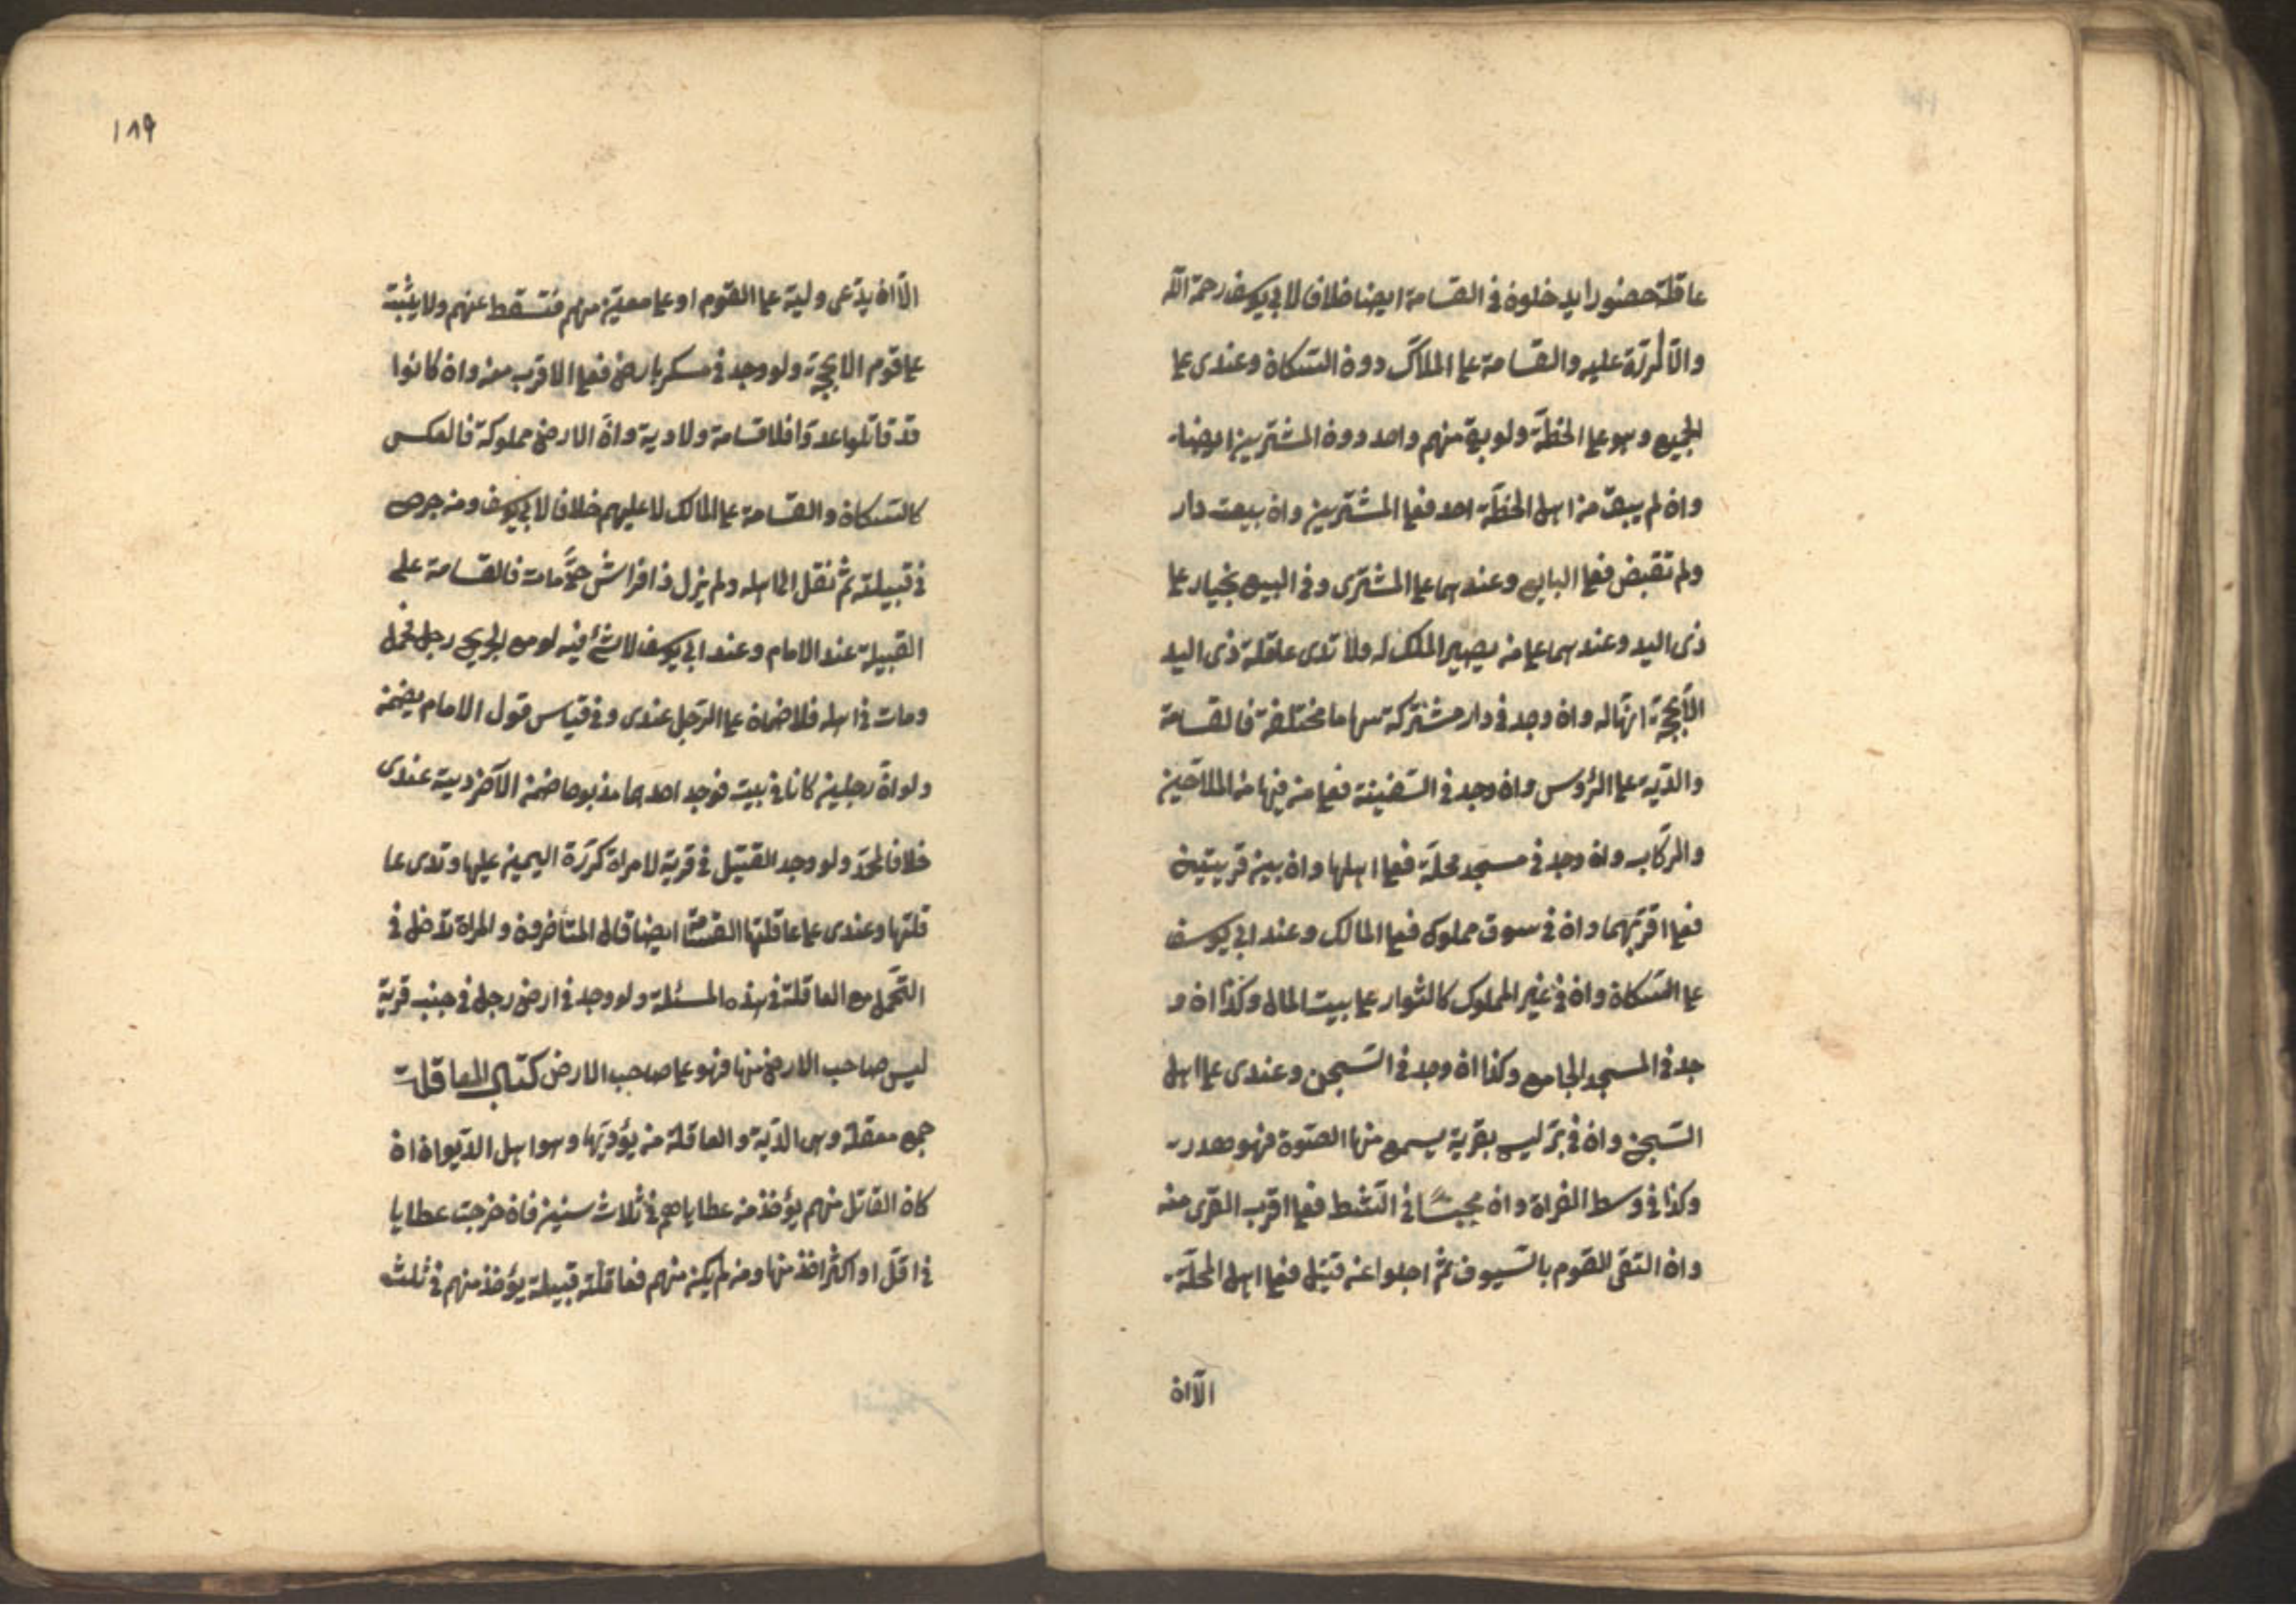 عاقلته حضورا يدخلون في القسامة ايضا خلافا لابي يوسف رحمه الله
والا كررت عليه والقسامة على الملاك دون السكان وعندى على
الجميع وهو على الخطة ولو بقي منهم واحد دون المشتريين ايضا
وان لم يبق من اهل الخطة احد فعلى المشتريين وان بيعت دار
ولم تقبض فعلى البايع وعندهما على المشترى وفي البيع بخيار على
ذى اليد وعندهما على من يصير الملك له ولا تدى عاقلة ذى اليد
الا بحجة انها له وان وجد في دار مشتركة سهاما مختلفة فالقسامة
والدية على الرؤس وان وجد في السفينة فعلى من فيها من الملاحين
والركاب وان وجد في مسجد محلة فعلى اهلها وان بين قريتين
فعلى اقربهما وان في سوق مملوك فعلى المالك وعند ابي يوسف
على السكان وان في غير المملوك كالشوارع على بيت المال وكذا ان و
جد في المسجد الجامع وكذا ان وجد في السجن وعندى على اهل
السجن وان في بر ليس بقربه يسمع منها الصوة فهو هدر
وكذا في وسط الفراة وان محبسا في الشط فعلى اقرب القرى منه
وان التقى القوم بالسيوف ثم اجلوا عن قتيل فعلى اهل المحلة
الا ان
١٨٩
الا ان يدعى وليه على القوم او على معين منهم فتسقط عنهم ولا يثبت
على قوم الا بحجة ولو وجد في معسكر بارض فعلى الاقرب منه وان كانوا
قد قاتلوا عدوا فلا قسامة ولا دية وان الارض مملوكة فالعكس
كالسكان والقسامة على المالك لا عليهم خلافا لابي يوسف ومن جرح
في قبيلة ثم نقل الى اهله ولم يزل ذا فراش حتى مات فالقسامة على
القبيلة عند الامام وعند ابي يوسف لا شئ فيه لو مع الجريح رجل فحمل
ومات في اهله فلا ضمان على الرجل عندى وفي قياس قول الامام يضمن
ولو ان رجلين كانا في بيت فوجد احدهما مذبوحا ضمن الآخر ديته عندى
خلافا لمحمد ولو وجد القتيل في قرية لامراة كررة اليمين عليها وتدى عا
قلتها وعندى على عاقلتها القسامة ايضا قال المتأخرون والمراة تدخل في
التحمل مع العاقلة في هذه المسئلة ولو وجد في ارض رجل في جنب قرية
ليس صاحب الارض منها فهو على صاحب الارض كتاب المعاقل
جمع معقلة وهى الدية والعاقلة من يؤديها وهو اهل الديوان ان
كان القاتل منهم يؤخذ من عطاياهم في ثلاث سنين فان خرجت عطايا
في اقل او اكثر اخذ منها ومن لم يكن منهم فعاقلته قبيلته يؤخذ منهم في ثلث